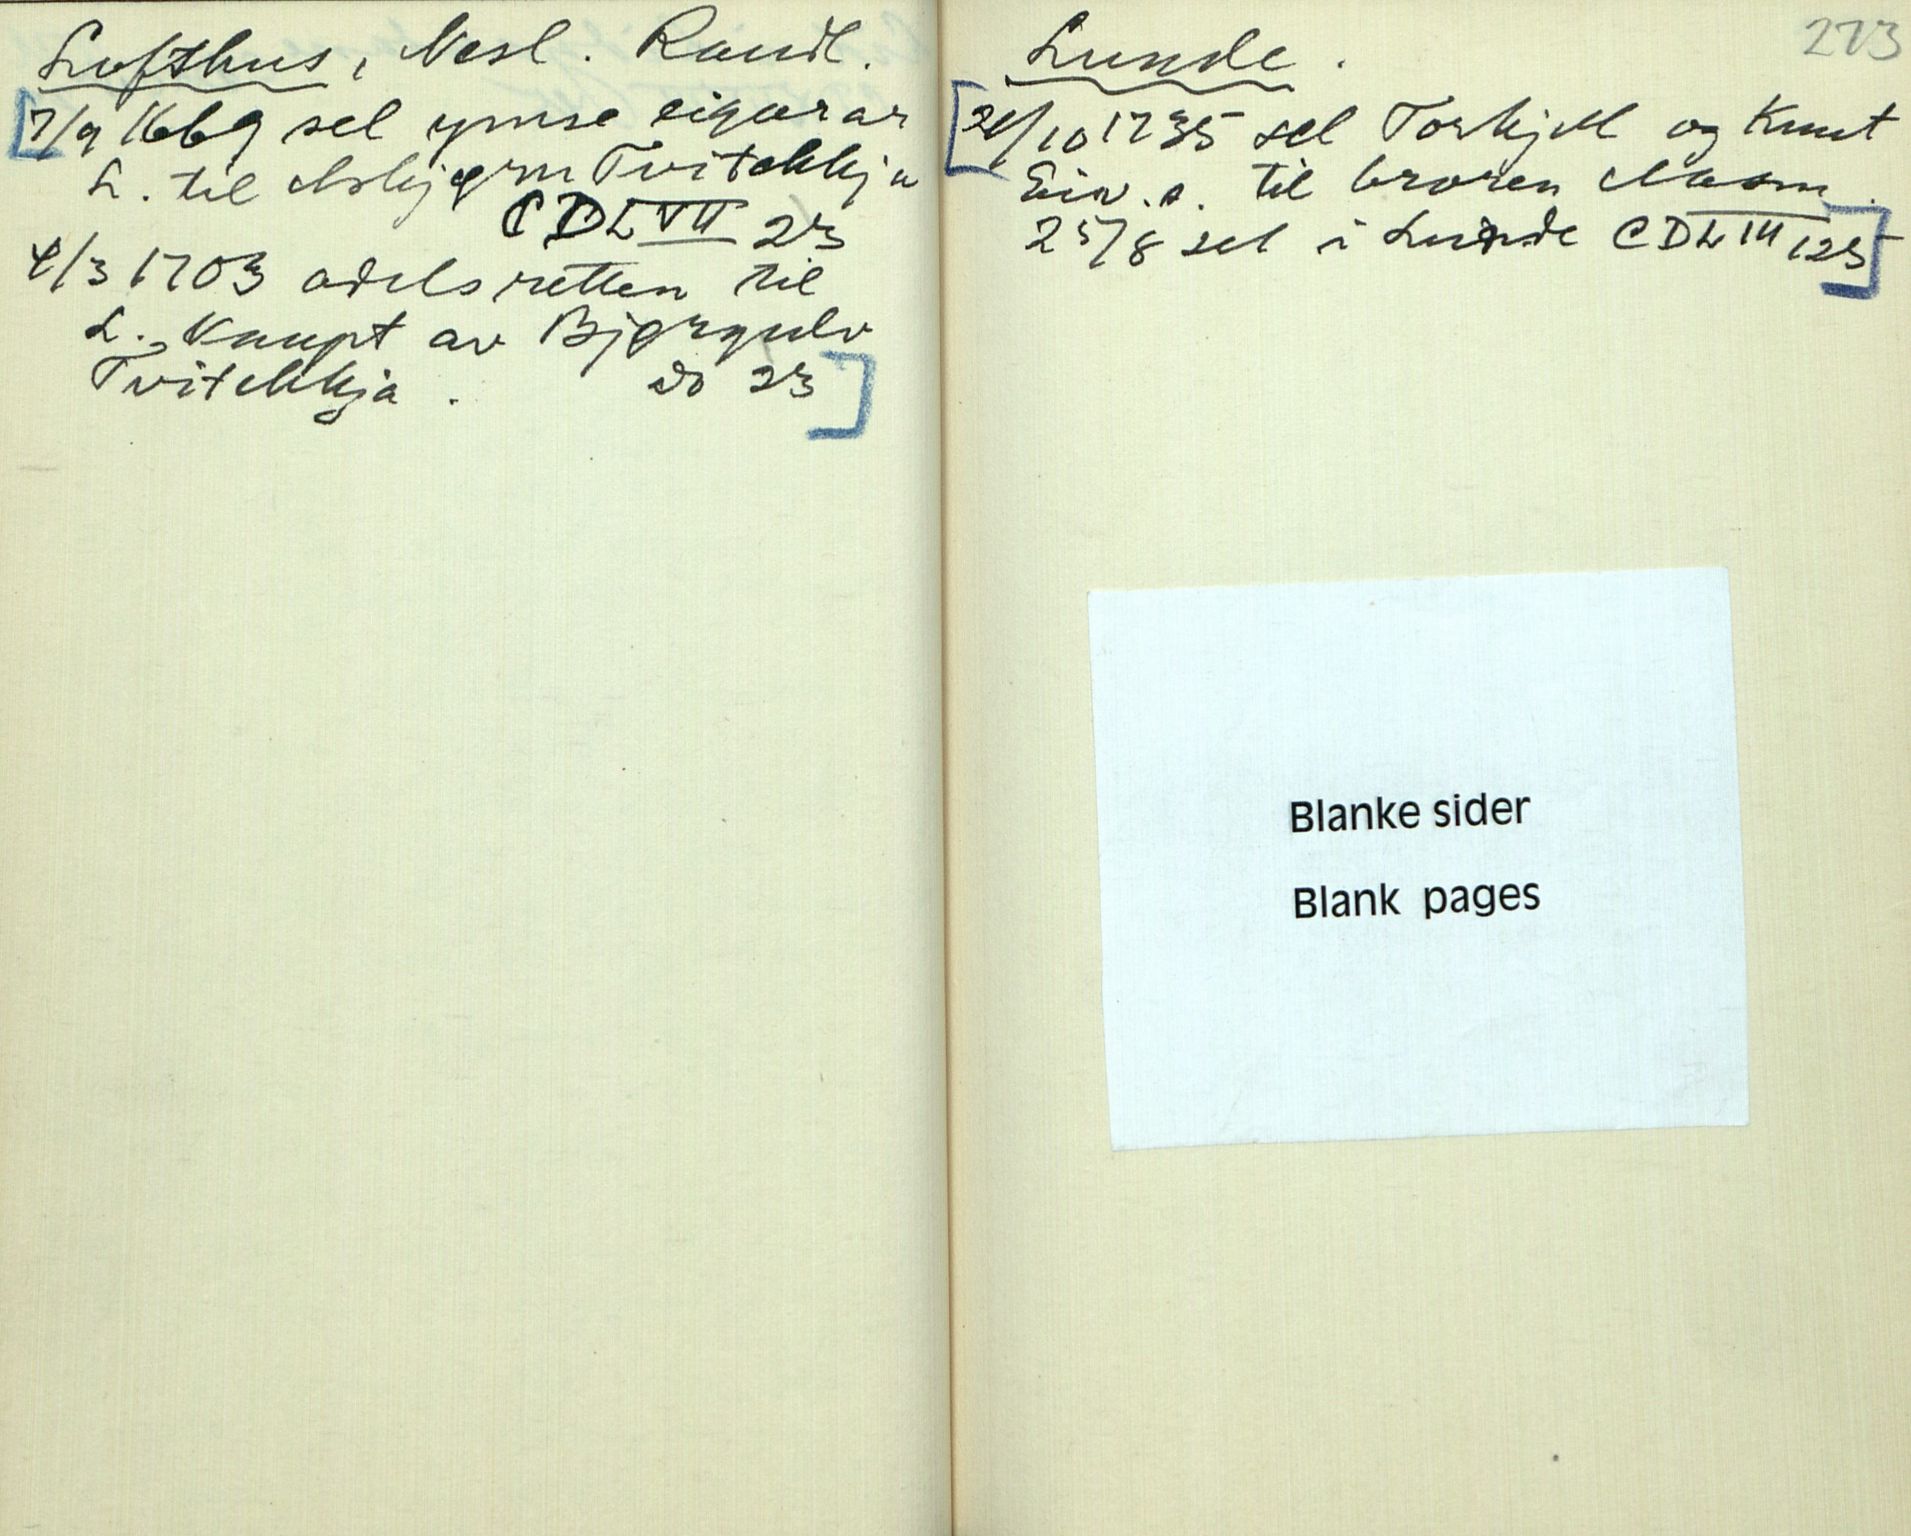 Lofthus, Nesl. Raudl.
7/9 1669 sel ymse eigarar
L. til Asbjørn Tvitekkja
CDL VII 23
4/3 1703 odelsretten til
L. kaupt av Bjørgulv
Tvitekkja. do 23
273
Lunde.
21/10 1735 sel Torkjell og Knut
Eiv. s. til broren Aasm.
25/8 sel i Lunde CDL III 125
Blanke sider
Blank pages